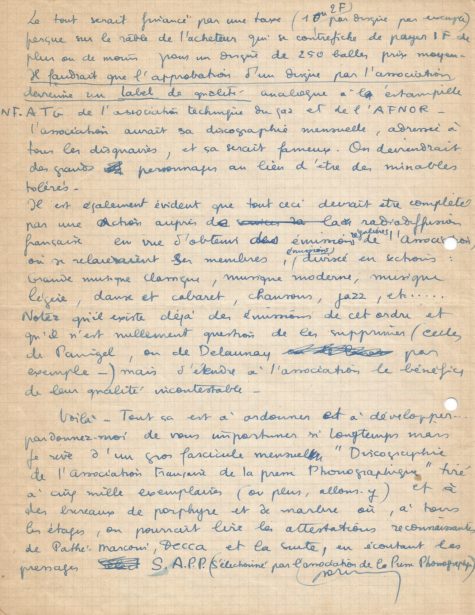 Le tout serait financé par une taxe (1 ou 2F par disque par exemple)
perçue sur le râble de l'acheteur qui se contrefiche de payer 1F de
plus ou de moins pour un disque de 250 balles prix moyen.
Il faudrait que l'approbation d'un disque par l'association
devienne un label de qualité analogue à la estampille
NF. ATG de l'association technique du gaz et de l'AFNOR -
l'association aurait sa discographie mensuelle, adressée à
tous les disquaires, et ça serait fameux. On deviendrait
des grands personnages au lieu d'être des minables
tolérés -
Il est également évident que tout ceci devrait être complété
par une action auprès de la radiodiffusion
française en vue d'obtenir des émissions régulières de l'Association
où se relaieraient ses membres, (émissions) divisé en sections :
Grande musique classique, musique moderne, musique
légère, danse et cabaret, chansons, jazz, etc.....
Notez qu'il existe déjà des émissions de cet ordre et
qu'il n'est nullement question de les supprimer (celles
de Panigel, ou de Delaunay par
exemple -) mais d'étendre à l'association le bénéfice
de leur qualité incontestable -
Voilà - Tout ça est à ordonner et à développer...
pardonnez-moi de vous importuner si longtemps mais
je rêve d'un gros fascicule mensuel "Discographie
de l'Association Française de la presse Phonographique" tiré
à cinq mille exemplaires (ou plus, allons-y) et à
des bureaux de porphyre et de marbre où, à tous
les étages, on pourrait lire les attestations reconnaissantes
de Pathé-Marconi, Decca et la suite, en écoutant les
pressages S.A.P.P. (Sélectionné par l'association de la Presse Phonographique)